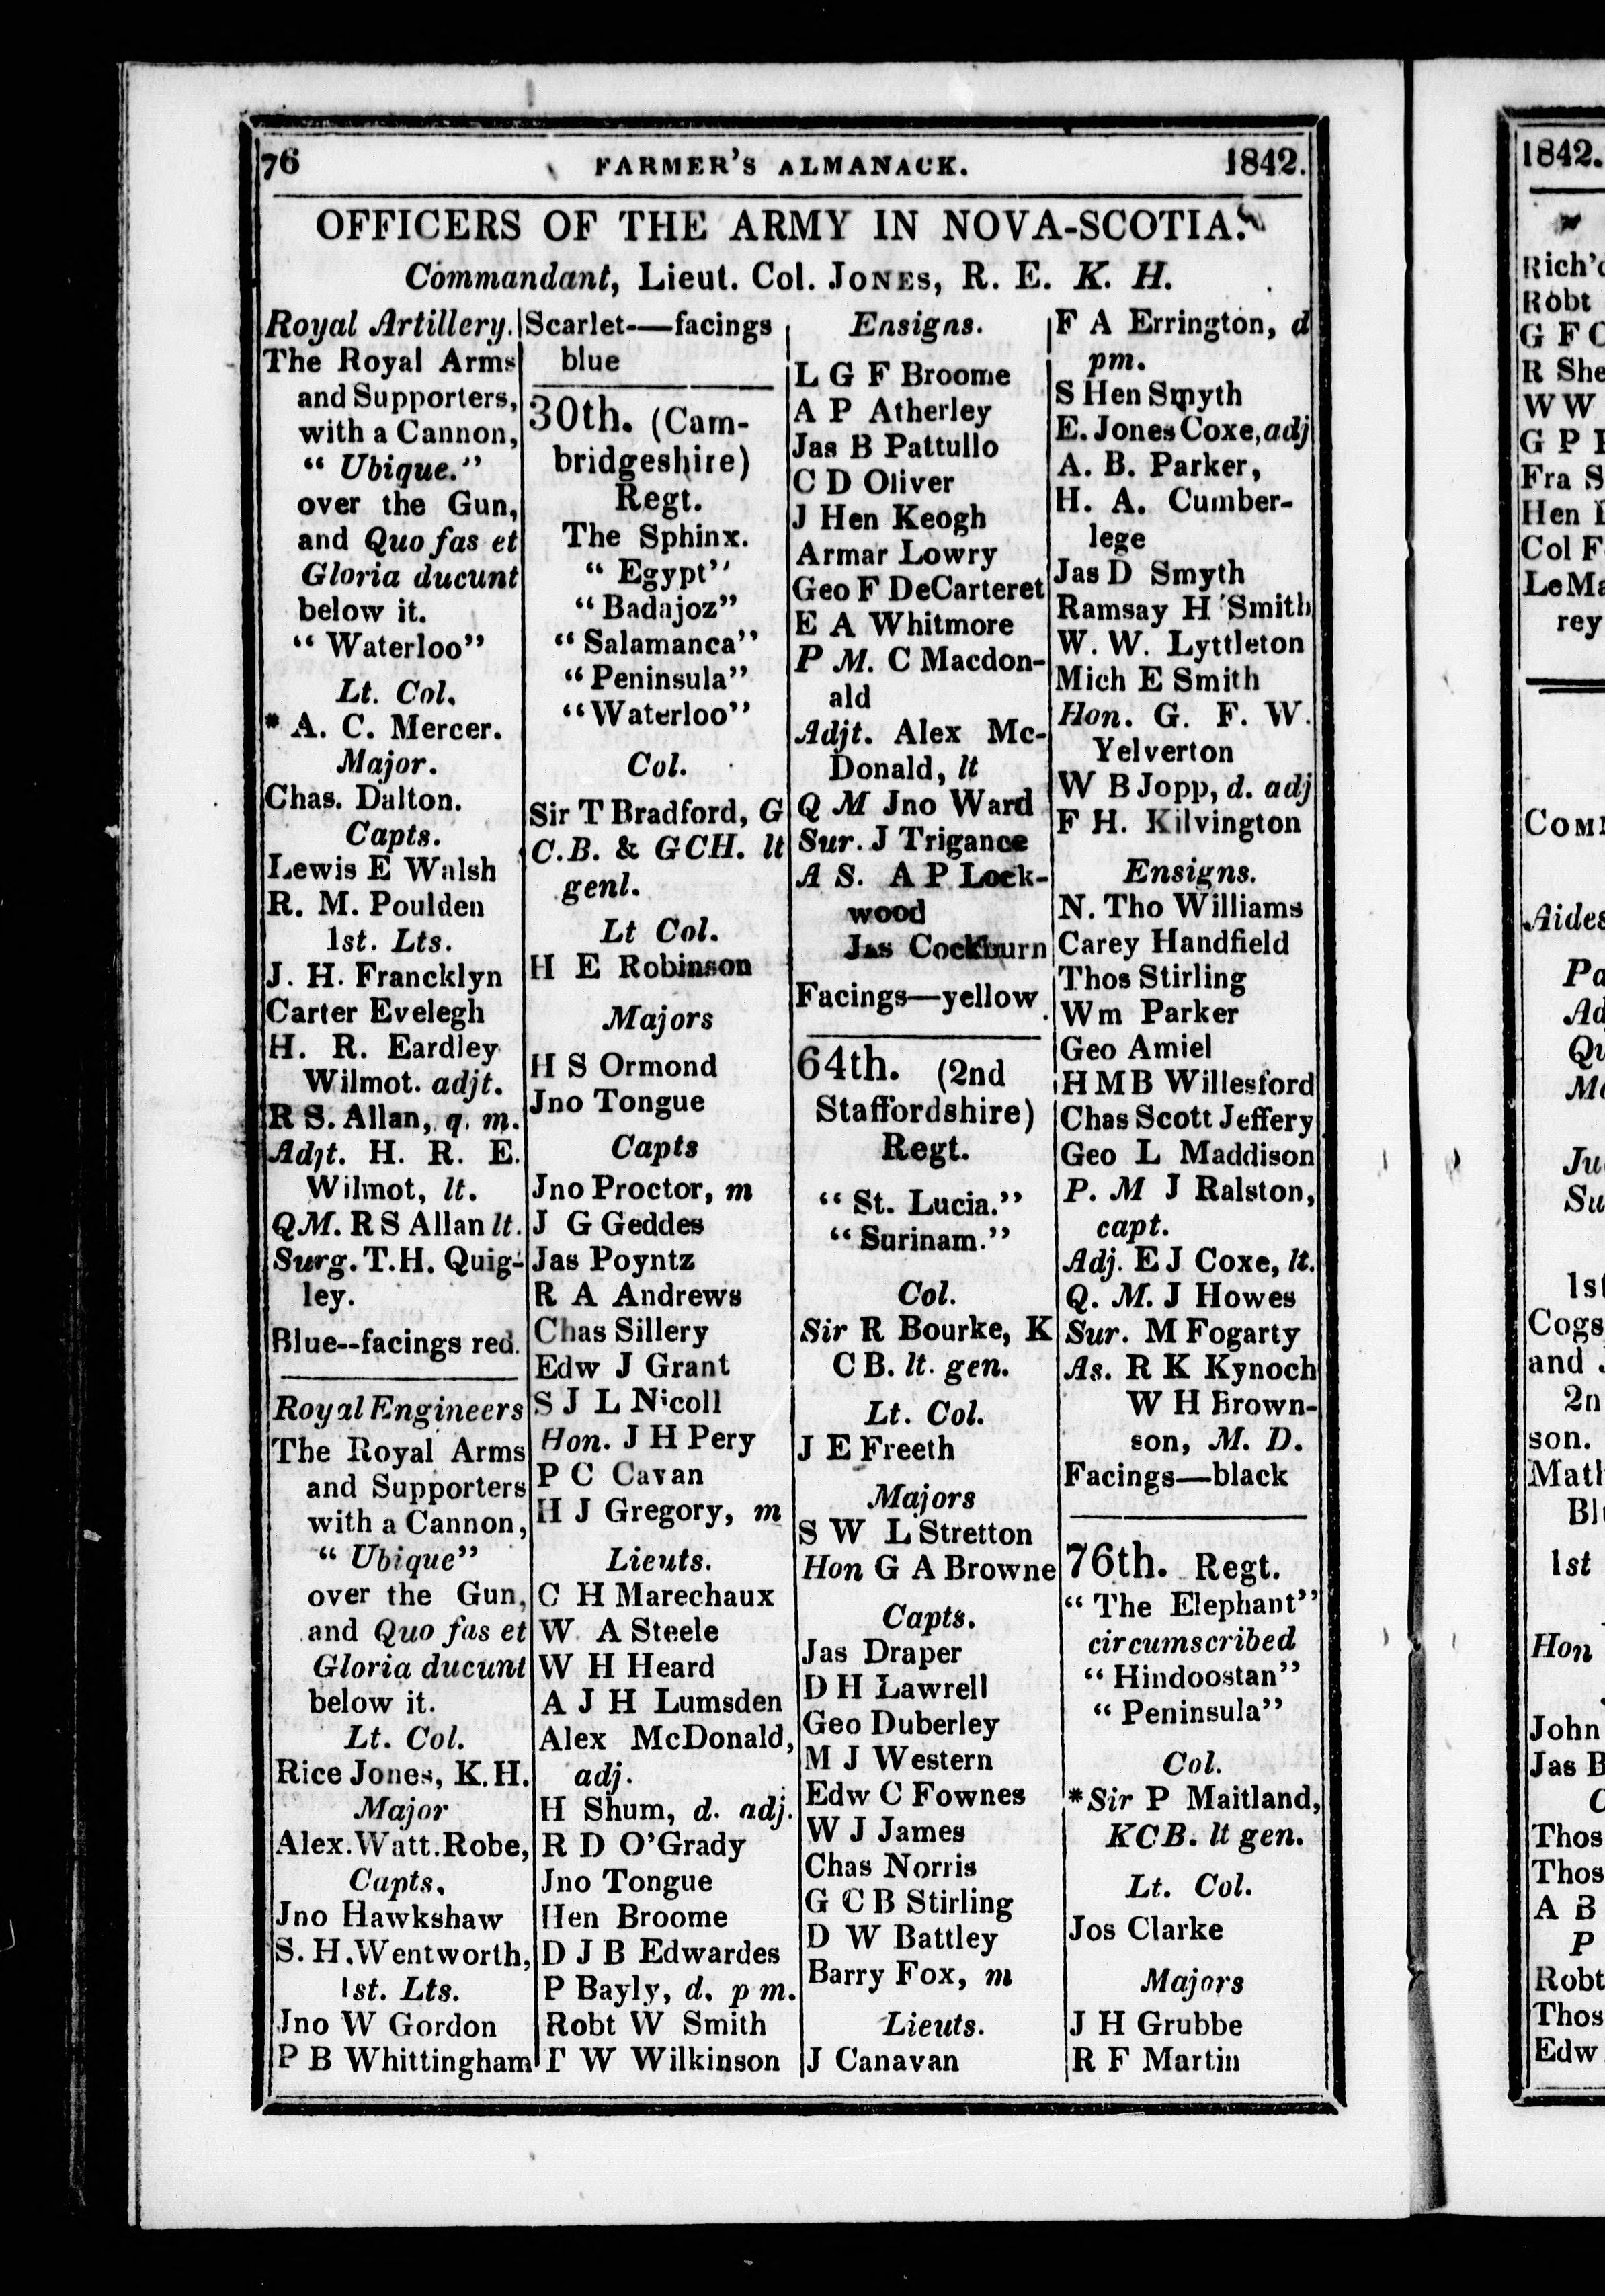 76 FARMER'S ALMANACK. 1842.
OFFICERS OF THE ARMY IN NOVA-SCOTIA.
Commandant, Lieut. Col. JONES, R. E. K. H.
Royal Artillery.
The Royal Arms
and Supporters,
with a Cannon,
" Ubique."
over the Gun,
and Quo fas et
Gloria ducunt
below it.
" Waterloo"
Lt. Col.
* A. C. Mercer.
Major.
Chas. Dalton.
Capts.
Lewis E Walsh
R. M. Poulden
1st. Lts.
J. H. Francklyn
Carter Evelegh
H. R. Eardley
Wilmot. adjt.
R S. Allan, q. m.
Adjt. H. R. E.
Wilmot, lt.
QM. R S Allan lt.
Surg. T.H. Quig-
ley.
Blue--facings red.
Royal Engineers
The Royal Arms
and Supporters
with a Cannon,
" Ubique"
over the Gun,
and Quo fas et
Gloria ducunt
below it.
Lt. Col.
Rice Jones, K.H.
Major
Alex.Watt.Robe,
Capts.
Jno Hawkshaw
S. H. Wentworth,
1st. Lts.
Jno W Gordon
P B Whittingham
Scarlet-—facings
blue
30th. (Cam-
bridgeshire)
Regt.
The Sphinx.
" Egypt"
" Badajoz"
" Salamanca"
" Peninsula"
"Waterloo"
Col.
Sir T Bradford, G
C.B. & GCH. lt
genl.
Lt Col.
H E Robinson
Majors
H S Ormond
Jno Tongue
Capts
Jno Proctor, m
J G Geddes
Jas Poyntz
R A Andrews
Chas Sillery
Edw J Grant
S J L Nicoll
Hon. J H Pery
P C Cavan
H J Gregory, m
Lieuts.
C H Marechaux
W A Steele
W H Heard
A J H Lumsden
Alex McDonald,
adj.
H Shum, d. adj.
R D O'Grady
Jno Tongue
Hen Broome
D J B Edwardes
P Bayly, d. p m.
Robt W Smith
T W Wilkinson
Ensigns.
L G F Broome
A P Atherley
Jas B Pattullo
C D Oliver
J Hen Keogh
Armar Lowry
Geo F DeCarteret
E A Whitmore
P M. C Macdon-
ald
Adjt. Alex Mc-
Donald, lt
Q M Jno Ward
Sur. J Trigance
A S. A P Lock-
wood
Jas Cockburn
Facings—yellow
64th. (2nd
Staffordshire)
Regt.
" St. Lucia."
" Surinam."
Col.
Sir R Bourke, K
C B. lt. gen.
Lt. Col.
J E Freeth
Majors
S W L Stretton
Hon G A Browne
Capts.
Jas Draper
D H Lawrell
Geo Duberley
M J Western
Edw C Fownes
W J James
Chas Norris
G C B Stirling
D W Battley
Barry Fox, m
Lieuts.
J Canavan
F A Errington, d
pm.
S Hen Smyth
E. Jones Coxe, adj
A. B. Parker,
H. A. Cumber-
lege
Jas D Smyth
Ramsay H Smith
W. W. Lyttleton
Mich E Smith
Hon. G. F. W.
Yelverton
W B Jopp, d. adj
F H. Kilvington
Ensigns.
N. Tho Williams
Carey Handfield
Thos Stirling
Wm Parker
Geo Amiel
H M B Willesford
Chas Scott Jeffery
Geo L Maddison
P. M J Ralston,
capt.
Adj. E J Coxe, lt.
Q. M. J Howes
Sur. M Fogarty
As. R K Kynoch
W H Brown-
son, M. D.
Facings—black
76th. Regt.
" The Elephant"
circumscribed
" Hindoostan"
" Peninsula"
Col.
*Sir P Maitland,
KCB. lt gen.
Lt. Col.
Jos Clarke
Majors
J H Grubbe
R F Martin
1842.
Rich'd
Robt
G F C
R She
W W
G P
Fra S
Hen
Col F
LeMa
rey
COMM
Aides
Pa
Ad
Qu
Ju
Su
1st
Cogs
and
2n
son.
Math
Bl
1st
Hon
John
Jas B
Thos
Thos
A B
P
Robt
Thos
Edw